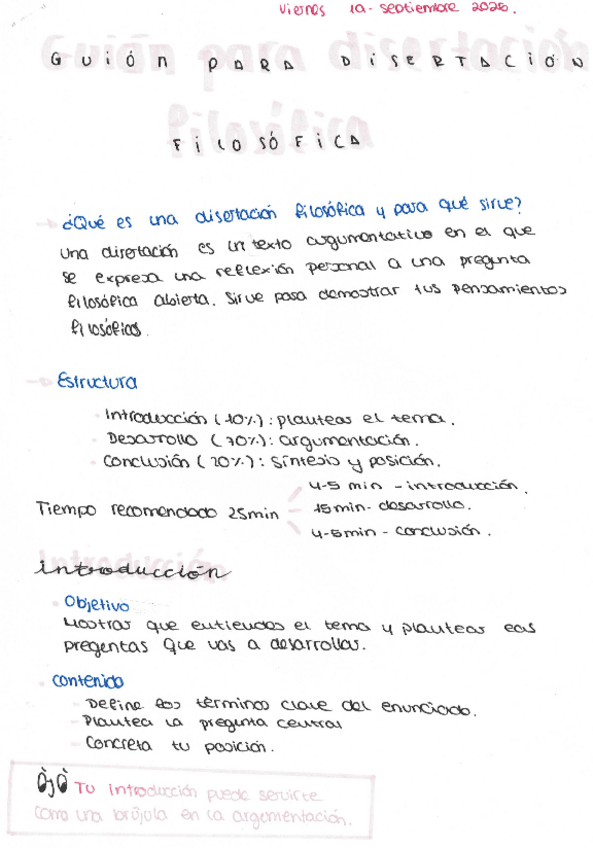 Viernes 19. septiembre 2025.
GUIÓN PARA DISERTACIÓN
FILOSÓFICA
¿Qué es una disertación filosófica y para qué sirve?
Una disertación es un texto argumentativo en el que
se expresa una reflexión personal a una pregunta
filosófica abierta. Sirve para demostrar tus pensamientos
filosóficos.
Estructura
Introducción (10%): planteas el tema.
Desarrollo (70%): argumentación.
Conclusión (20%): síntesis y posición.
4-5 min - introducción.
Tiempo recomendado 25min
15min- desarrollo.
4-5min - conclusión.
introducción
Objetivo
Mostrar que entiendes el tema y plantear las
preguntas que vas a desarrollar.
contenido
Define los términos clave del enunciado.
Plantea la pregunta central
Concreta tu posición.
OjO Tu introducción puede servirte
como una brújula en la argumentación.